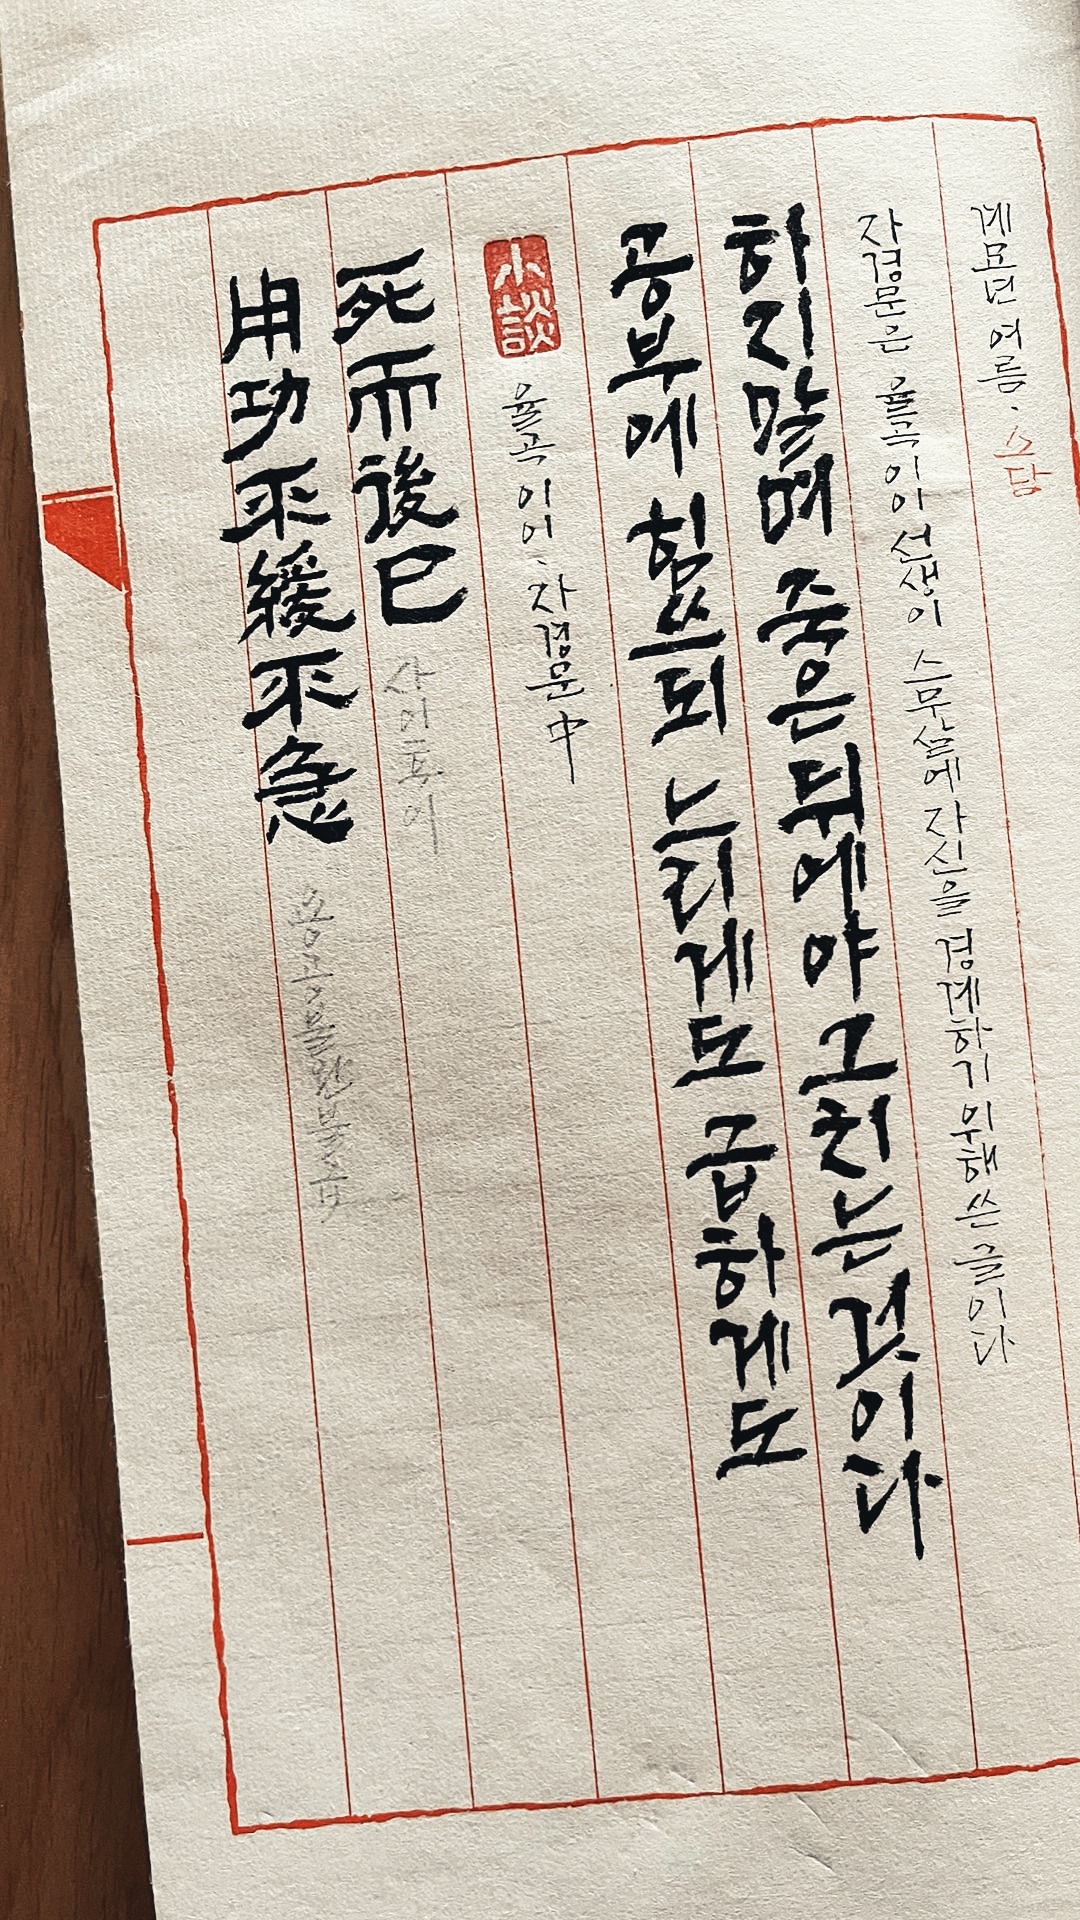 用功不緩不急 용공불완불급
死而後已 사이후이
小談
율곡 이이 · 자경문 中
공부에 힘쓰되 느리게도 급하게도
하지말며 죽은 뒤에야 그치는 것이다
자경문은 율곡이이 선생이 스무살에 자신을 경계하기 위해 쓴 글이다
계묘년 여름 · 소담